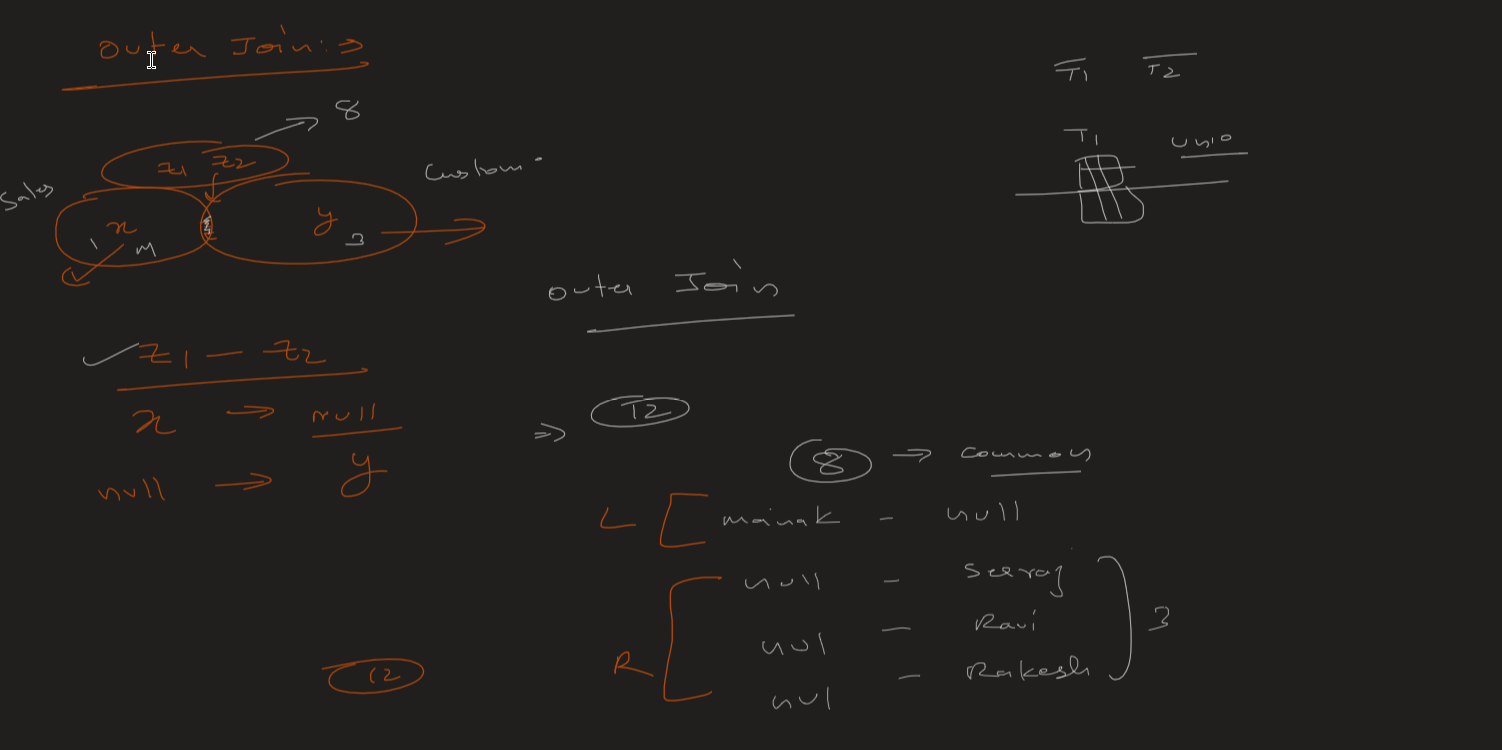 Outer Join :->
8
z1 z2
Sales
Custom
x
1 M
y
3
z1 — z2
x → null
null → y
12
T1 T2
T1 unio
Outer Join
=> 12
8 → common
L [ mainak - null
null - Seeraj
nul - Ravi
nul - Rakesh
R
3